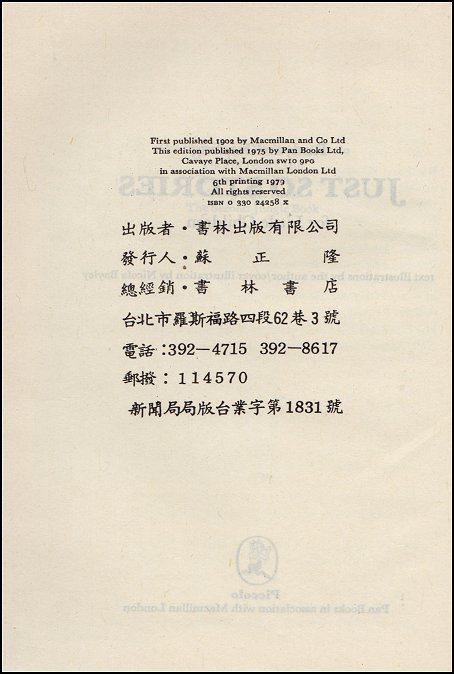 First published 1902 by Macmillan and Co Ltd
This edition published 1975 by Pan Books Ltd,
Cavaye Place, London SW10 9PG
in association with Macmillan London Ltd
6th printing 1979
All rights reserved
ISBN 0 330 24258 X
出版者・書林出版有限公司
發行人・蘇正隆
總經銷・書林書店
台北市羅斯福路四段62巷3號
電話:392—4715 392—8617
郵撥:114570
新聞局局版台業字第1831號
JUST SO STORIES
text illustrations by the author/cover illustration by Nicola Bayley
Piccolo
Pan Books in association with Macmillan London